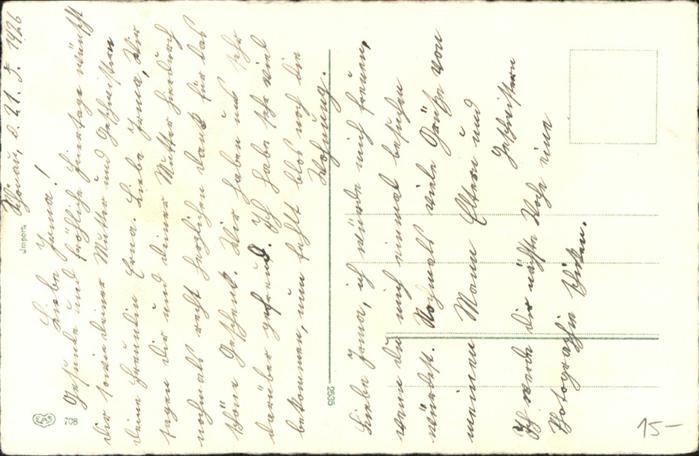 Schönau, d. 21. 5. 1926
Liebe Irma!
Gesunde und fröhliche Feiertage wünscht
dir sowie deiner Mutter und Geschwistern
deine Freundin Erna. Liebe Irma, Wir
sagen dir und deiner Mutter hierdurch
nochmals recht herzlichen Dank für das
schöne Geschenk. Wir haben uns sehr
darüber gefreut. Ich habe sehr viel
bekommen, nun fehlt blos noch die
Wohnung.
Liebe Irma, ich würde mich freuen,
wenn du mich einmal besuchen
würdest. Nochmals viele Grüße von
meinem Mann Eltern und
Geschwistern
Ich werde dir nächste Woche eine
Photographie schicken.
Import.
EAS
708
9535
15-